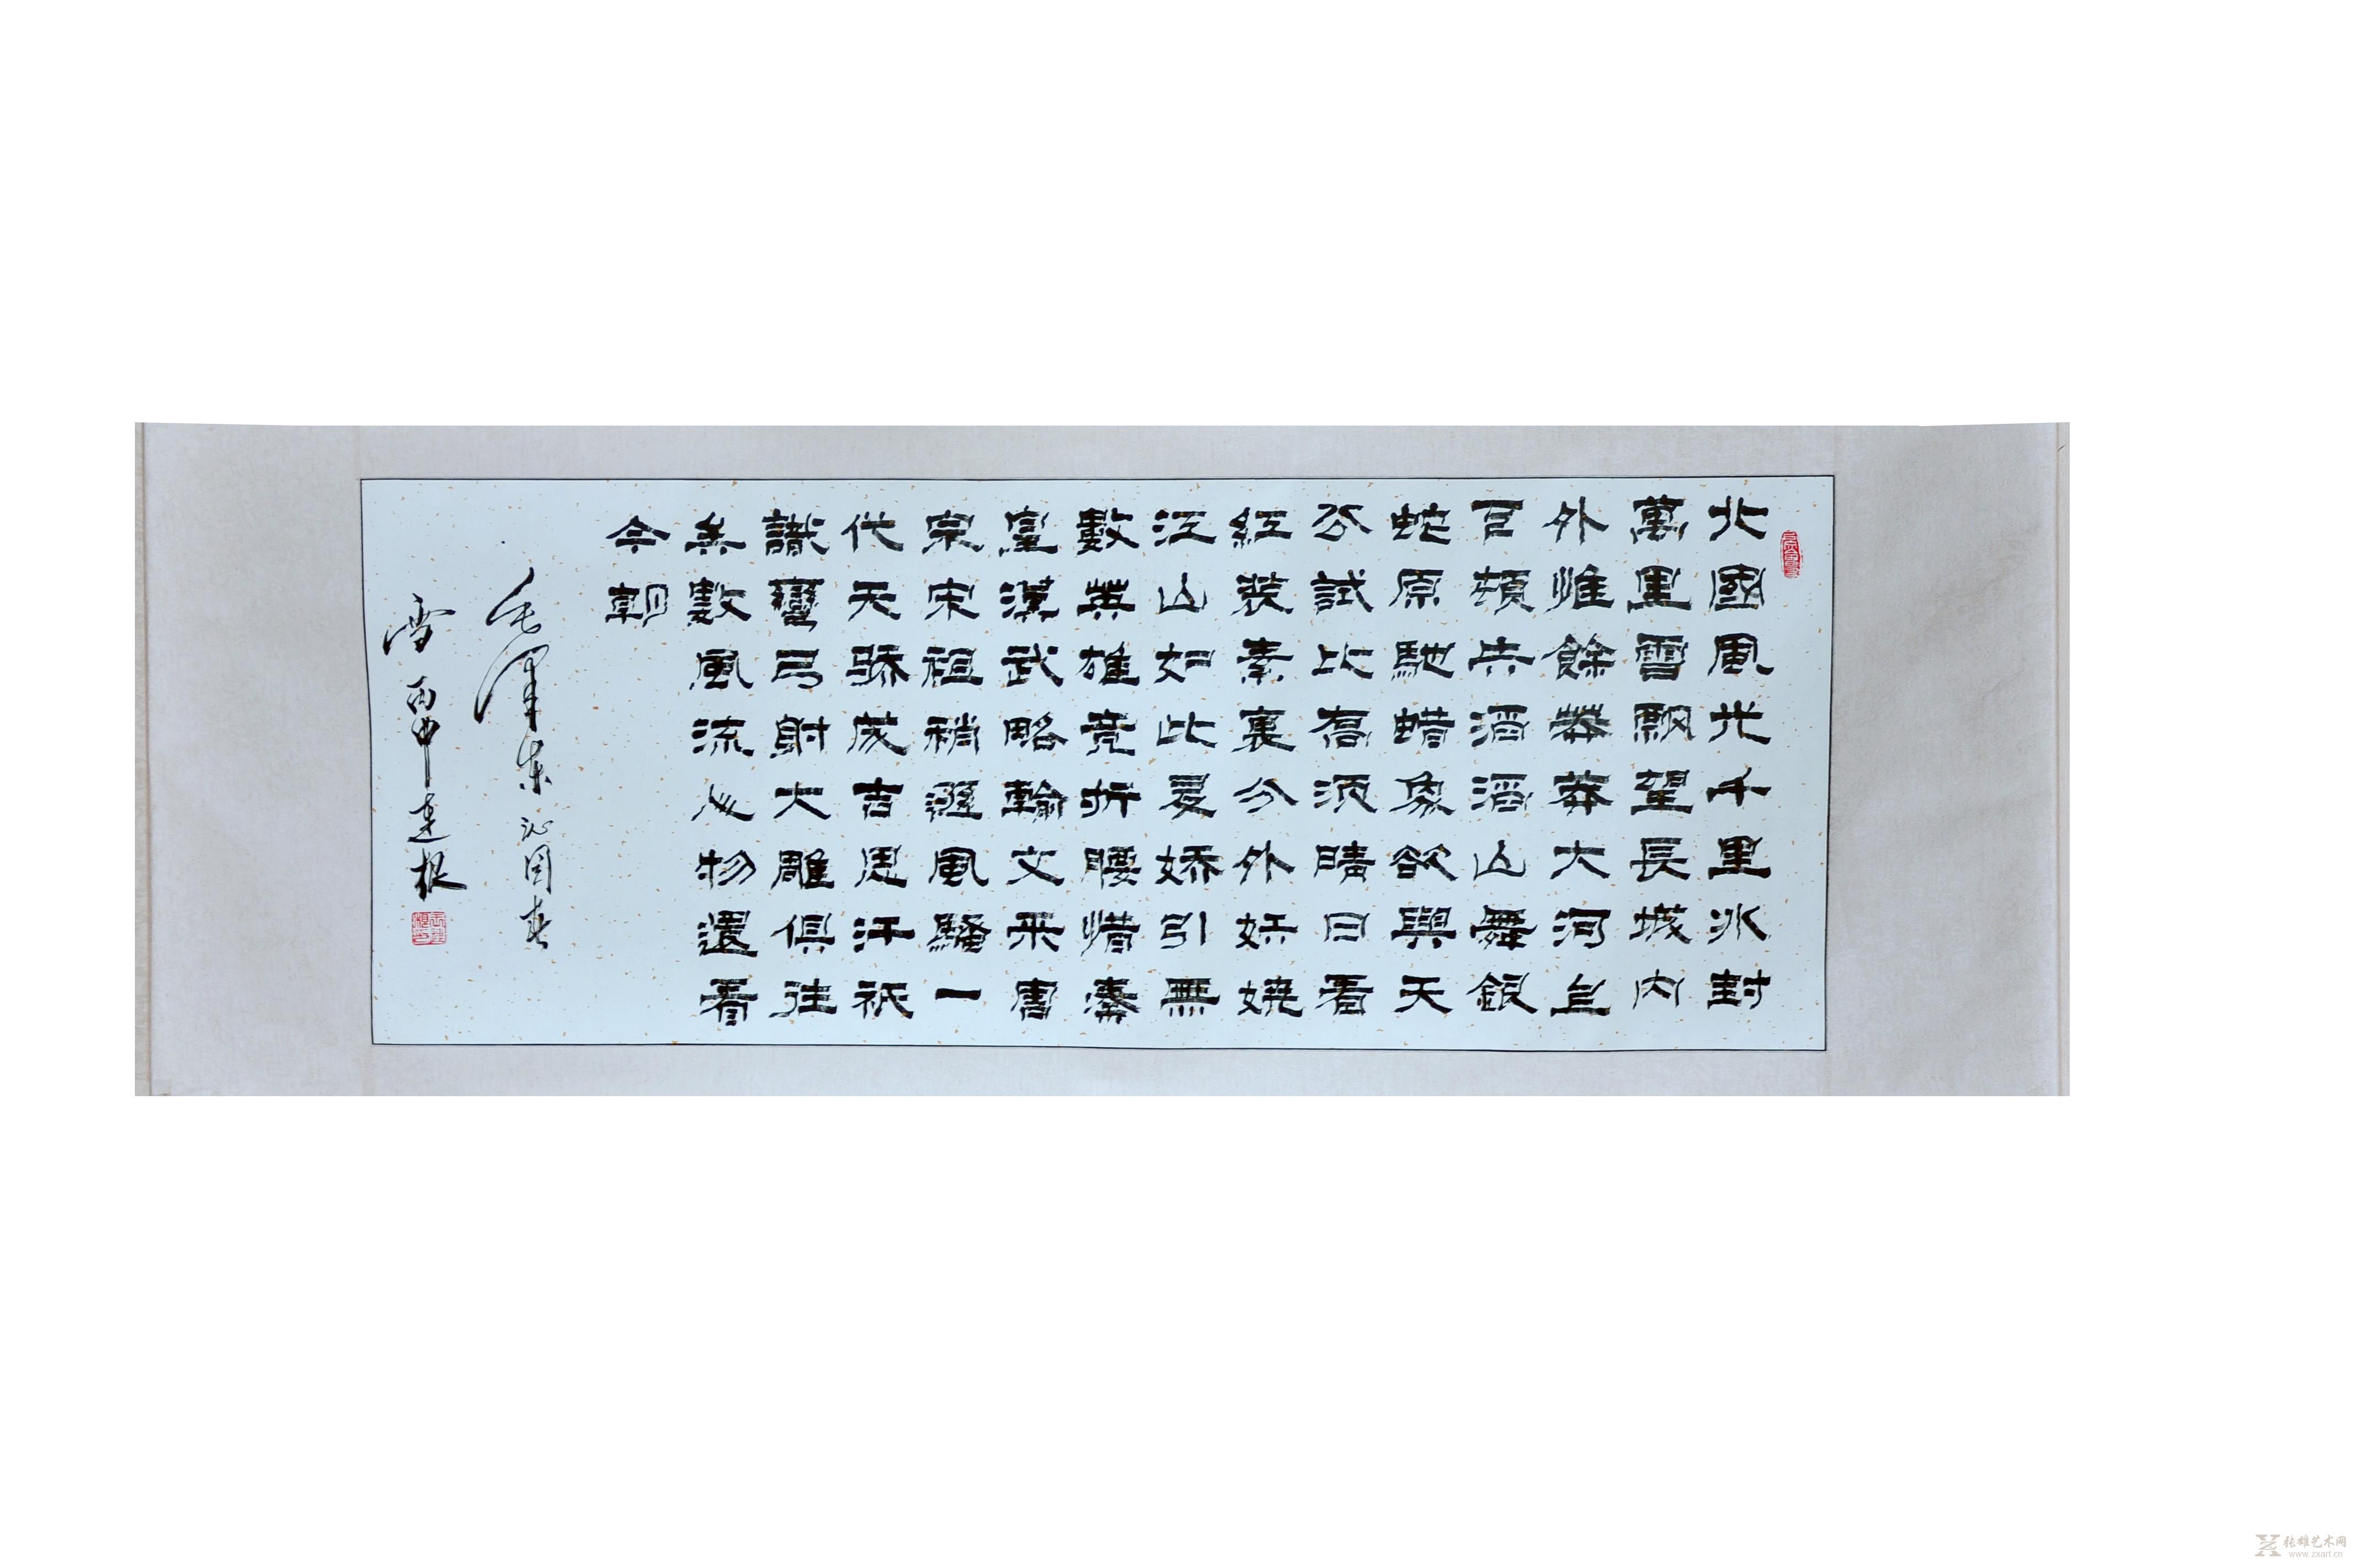 北國風光千里冰封
萬里雪飄望長城内
外惟餘莽莽大河上
下頓失滔滔山舞銀
蛇原馳蜡象欲與天
公試比高須晴日看
紅裝素裹分外妖嬈
江山如此多娇引無
數英雄竞折腰惜秦
皇漢武略輸文采唐
宗宋祖稍遜風騷一
代天骄成吉思汗祇
識彎弓射大雕俱往
矣數風流人物還看
今朝
毛澤东沁園春
雪 丙申建根
张雄艺术网
www.zxart.cn